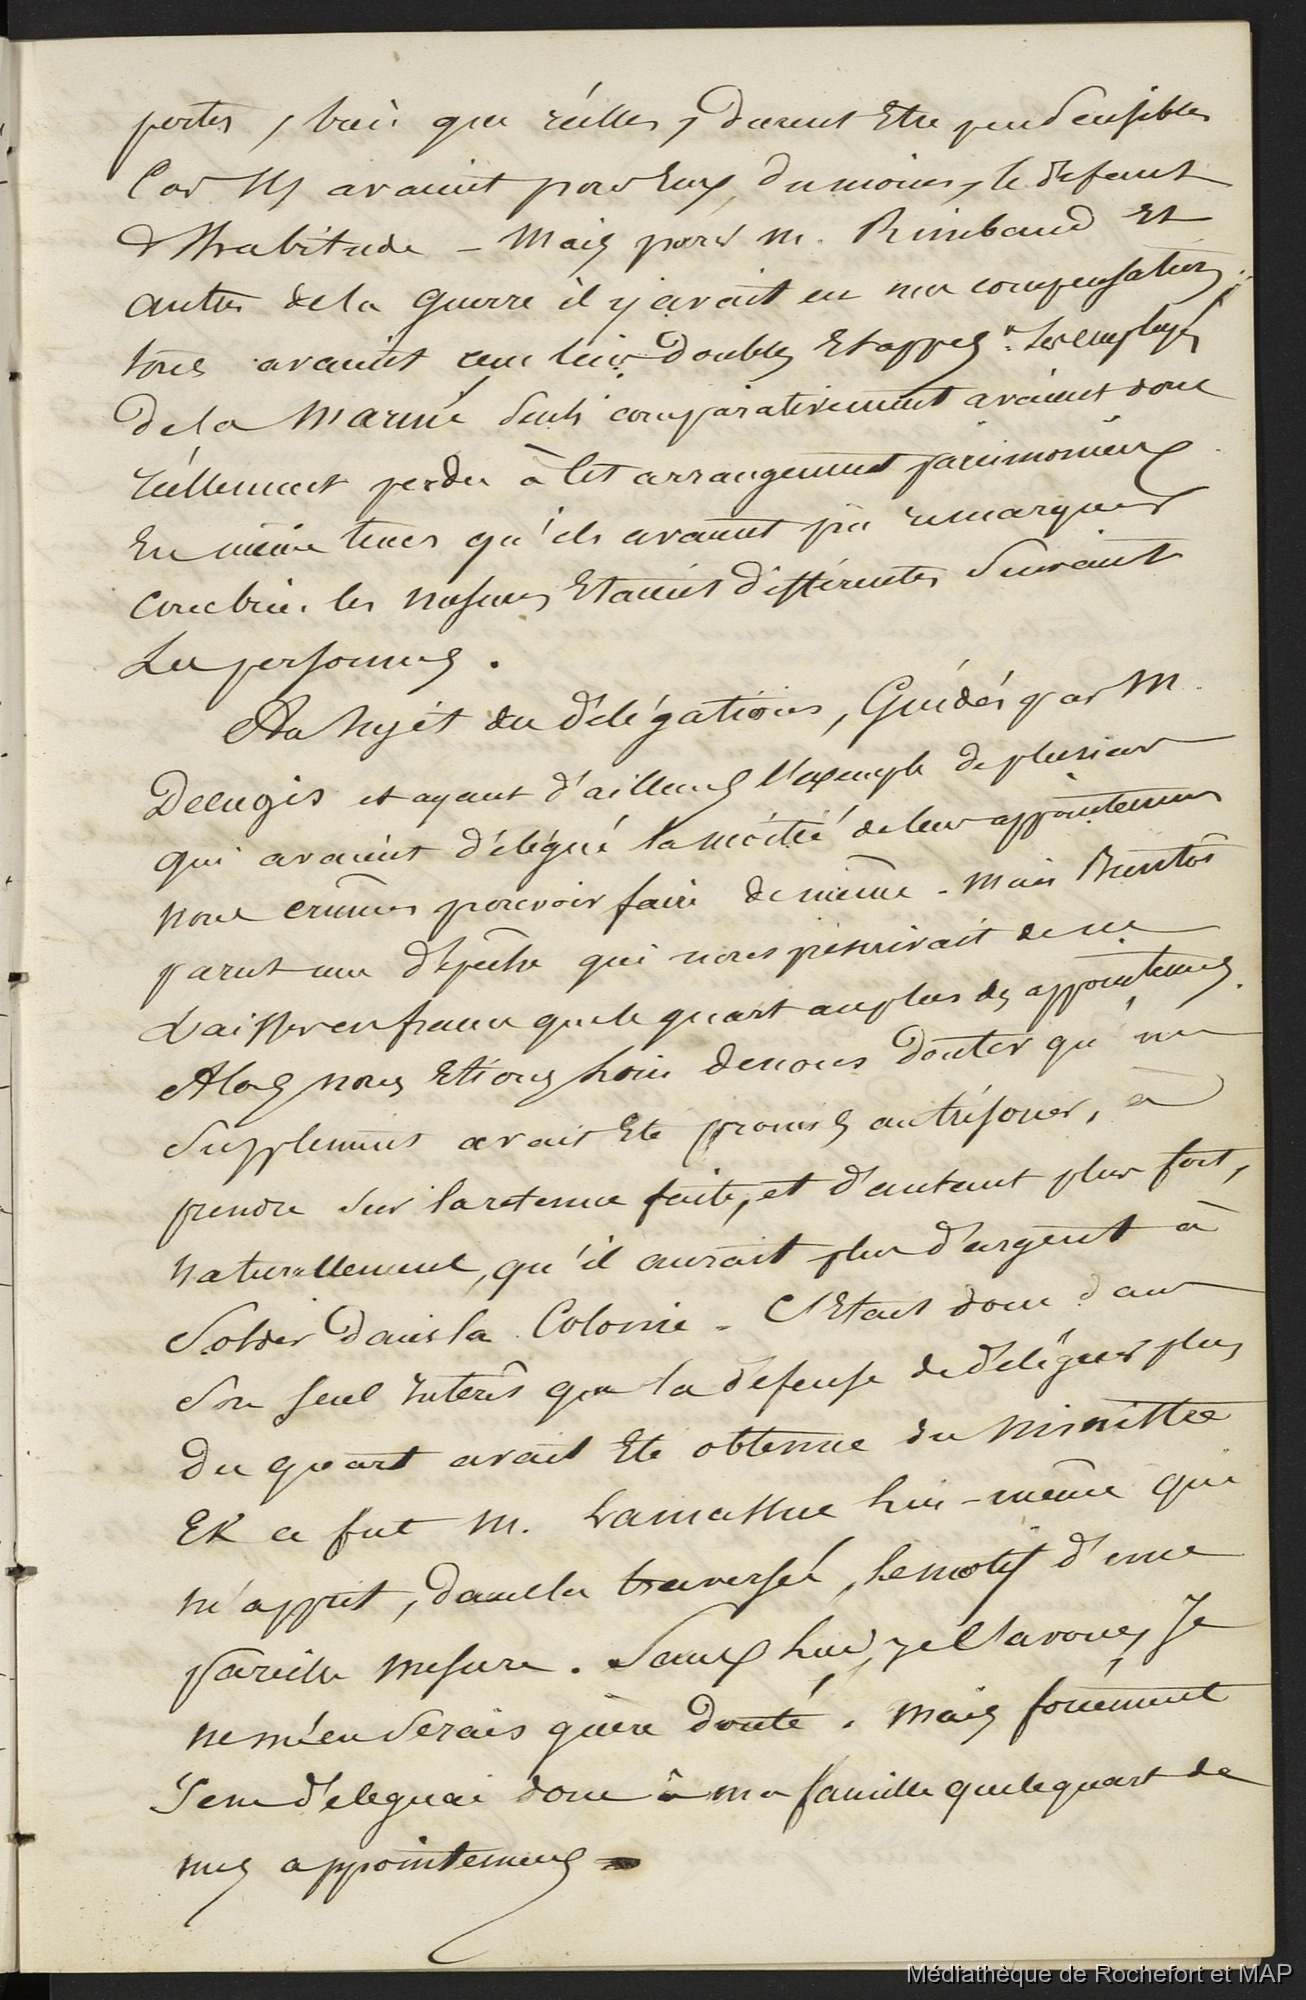 pertes, bien que réelles, durent Etre peu sensibles
Car Ils avaient pour Eux, du moins, le défaut
d'Habitude – Mais pour M. Rimbaud Et
autres de la Guerre il y avait eu une compensation:
tous avaient eu leurs doubles Etapes. Les employés
De la Marine seuls comparativement avaient donc
réellement perdu à cet arrangement parcimonieux
En même tems qu'ils avaient pu remarquer
Combien les mesures Etaient différentes Suivant
Les personnes.
Au Sujet des délégations, Guidés par M.
Delugis et ayant d'ailleurs l'exemple de plusieurs
qui avaient délégué la moitié de leurs appointemens
nous crumes pouvoir faire de même – Mais Bientôt
parut une dépêche qui nous prescrivait de ne
Laisser en france que le quart au plus des appointemens.
Alors nous Etions loin de nous douter qu'un
Supplément avait Eté promis au trésorier, à
prendre sur la retenue faite, et d'autant plus fort,
Naturellement, qu'il aurait plus d'argent à
Solder dans la Colonie – C'Etait donc dans
Son seul intérêt que la défense de déléguer plus
Du quart avait Eté obtenue du Ministre
Et ce fut M. Lamassue lui-même qui
M'apprit, dans la traversée, le motif d'une
pareille mesure. Sans lui, je l'avoue, Je
ne m'en serais guère douté. Mais forcément
Je ne déléguai donc à ma famille que le quart de
mes appointemens –
Médiathèque de Rochefort et MAP